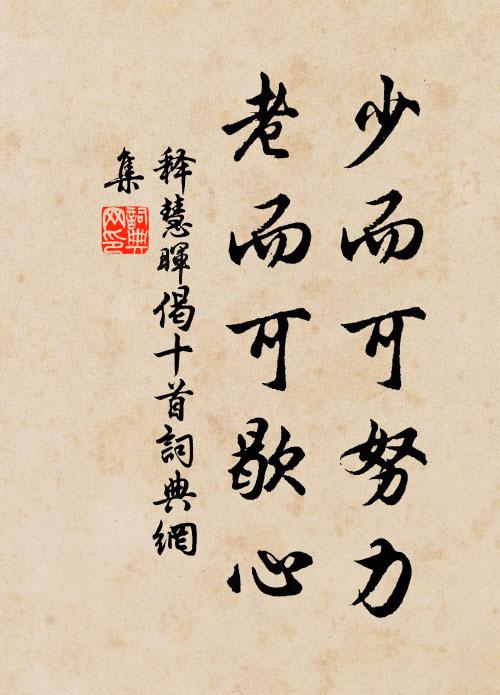 少而可努力
老而可歇心
释慧暉偈十首詞典網
集
詞典
网印